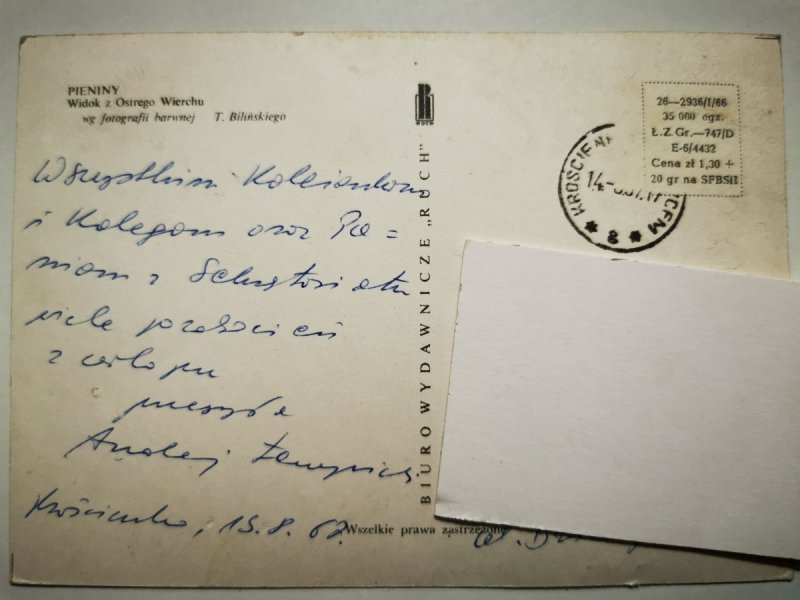 PIENINY
Widok z Ostrego Wierchu
wg fotografii barwnej T. Bilińskiego
RUCH
26—2936/I/66
35 000 egz.
Ł.Z.Gr.—747/D
E-6/4432
Cena zł 1,30 +
20 gr na SFBSiI
KROŚCIEN
8
BIURO WYDAWNICZE „RUCH”
Wszystkim Koleżankom
i Kolegom oraz Pa=
niom z Sekretariatu
wiele pozdrowień
z urlopu
przesyła
Andrzej
Krościenko, 15.8.67.
Wszelkie prawa zastrzeżone
ul.